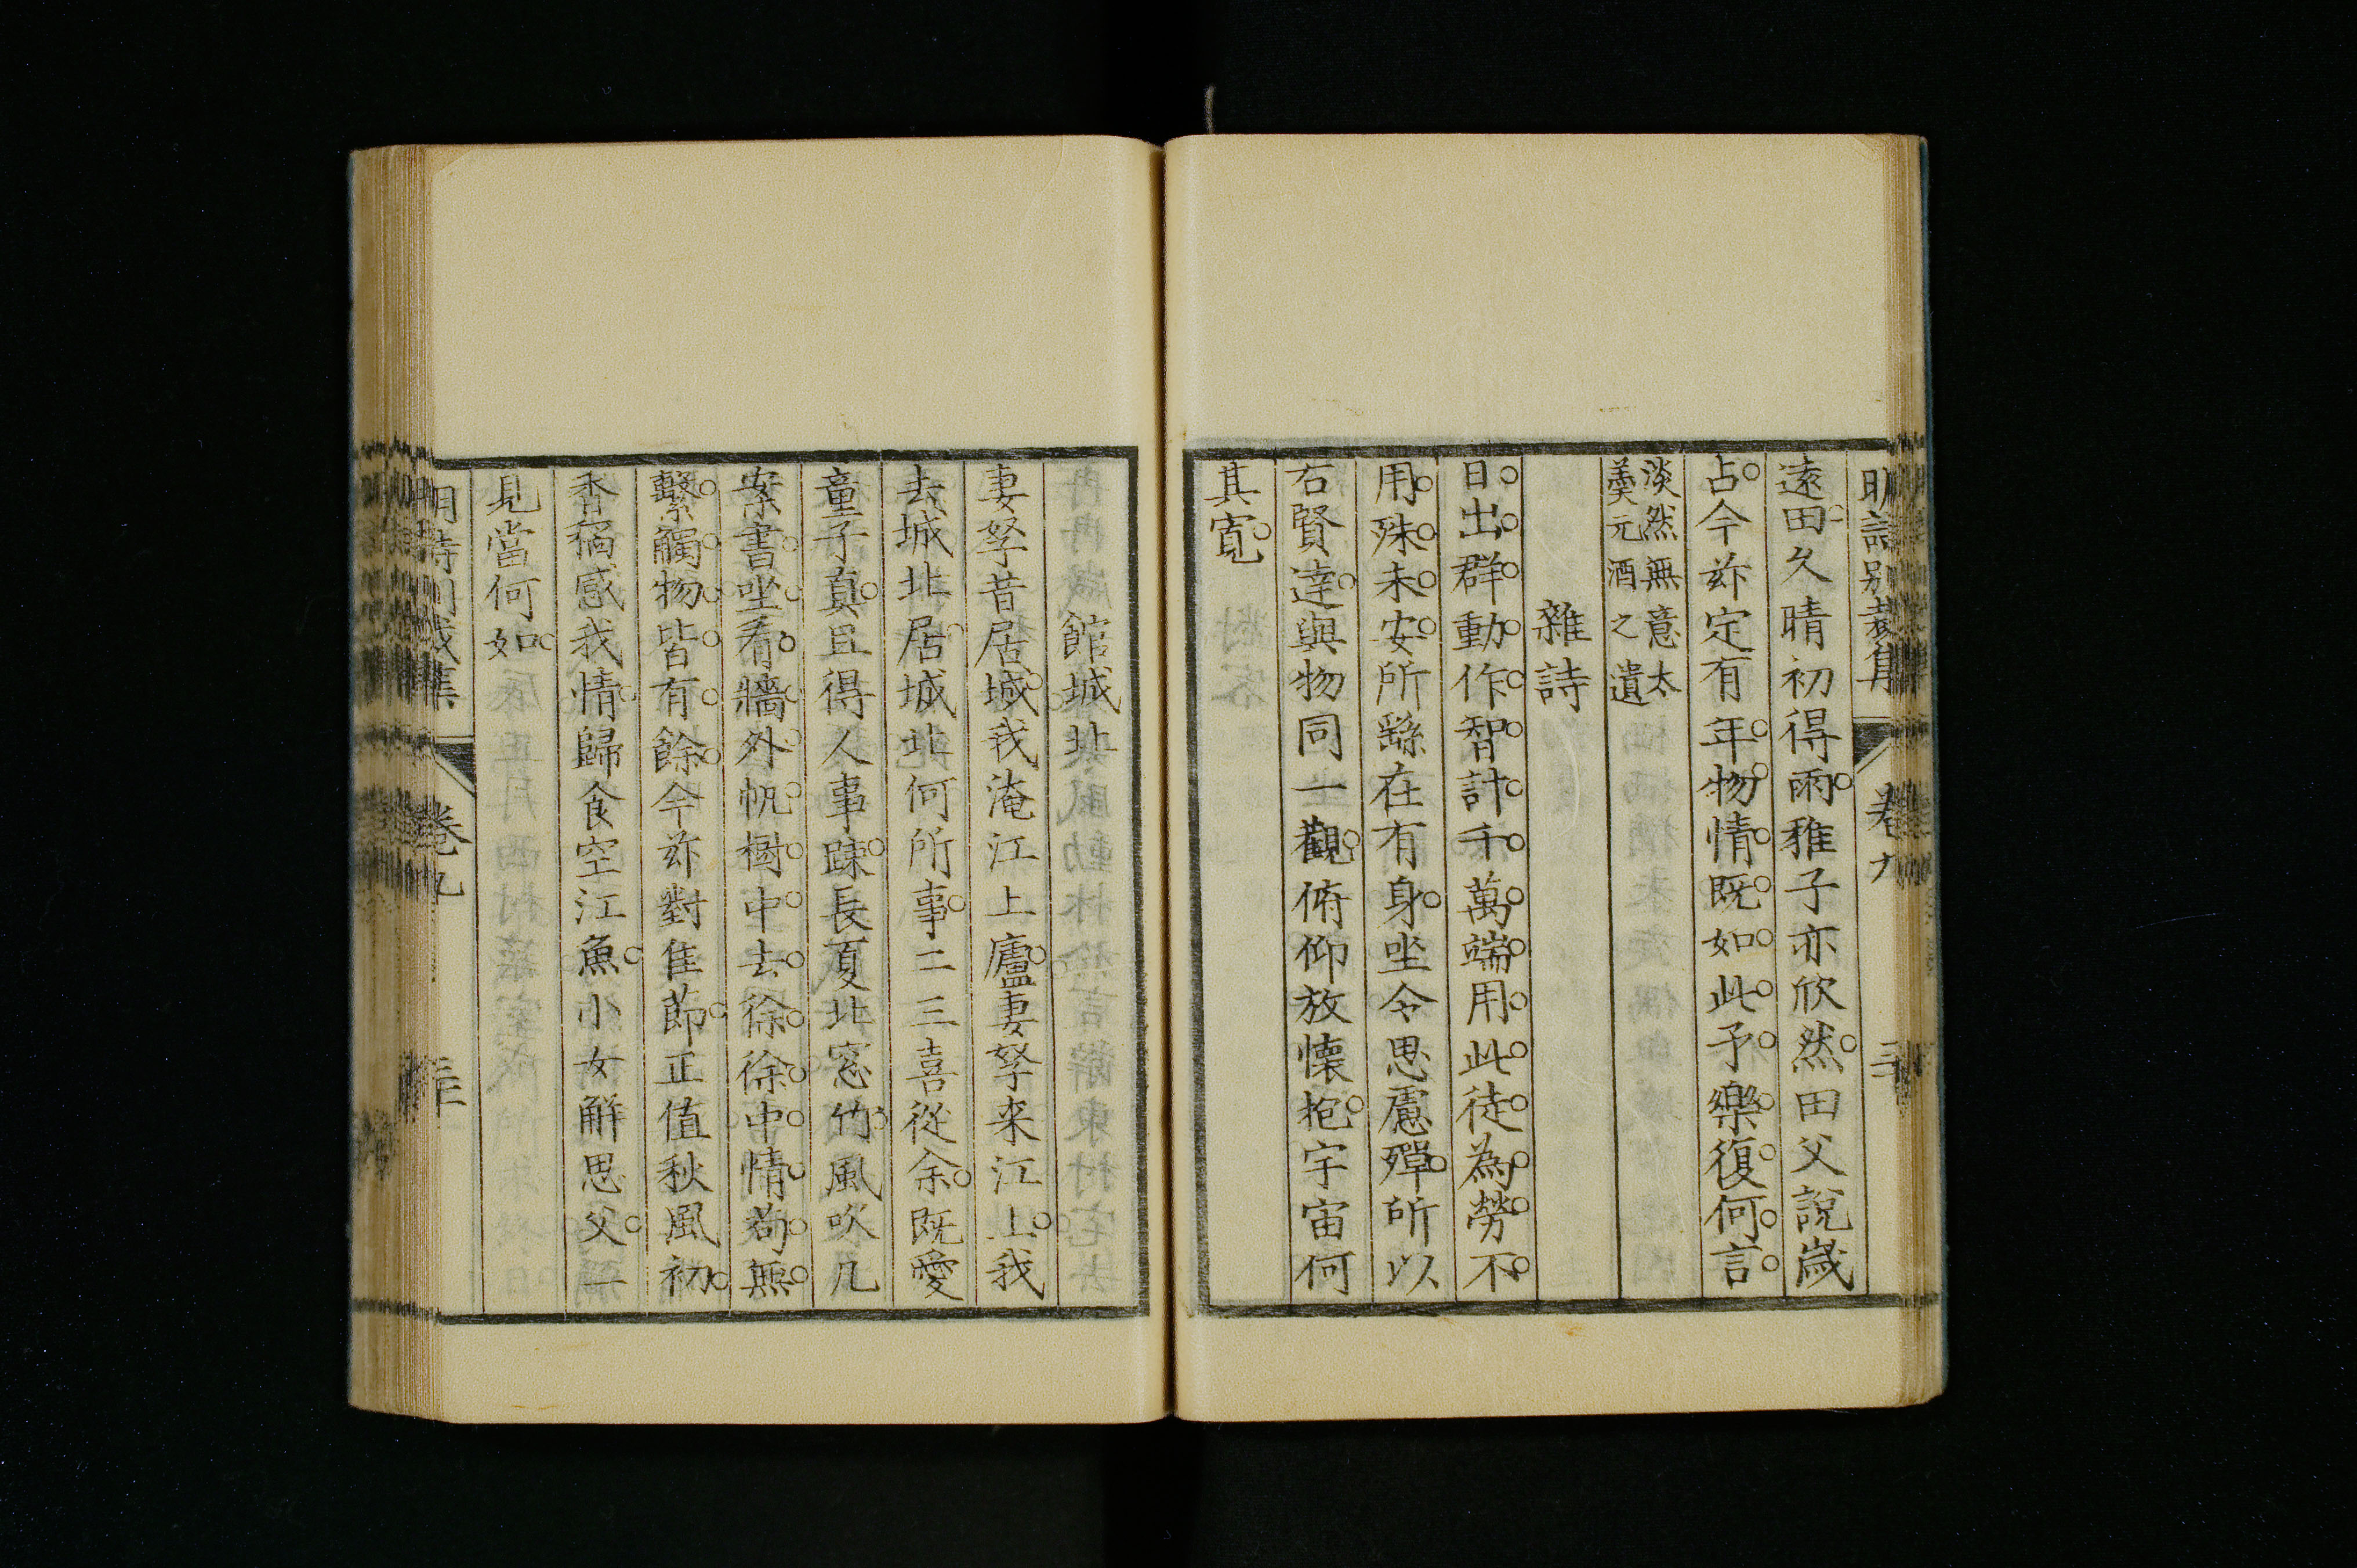 明詩別裁集 卷九 三
遠田久晴初得雨稚子亦欣然田父說歲
占今玆定有年物情既如此予樂復何言
淡然無意太
羹元酒之遺
雜詩
日出群動作智計千萬端用此徒為勞不
用殊未安所繇在有身坐令思慮殫所以
右賢達與物同一觀俯仰放懷抱宇宙何
其寬
館城北
妻孥昔居城我淹江上廬妻孥来江上我
去城北居城北何所事二三喜從余既愛
童子真且得人事踈長夏北窓竹風吹几
案書坐看牆外帆樹中去徐徐中情苟無
繫觸物皆有餘今玆對隹莭正值秋風初
香稲感我情歸食空江魚小女解思父一
見當何如
明詩別裁集 卷九